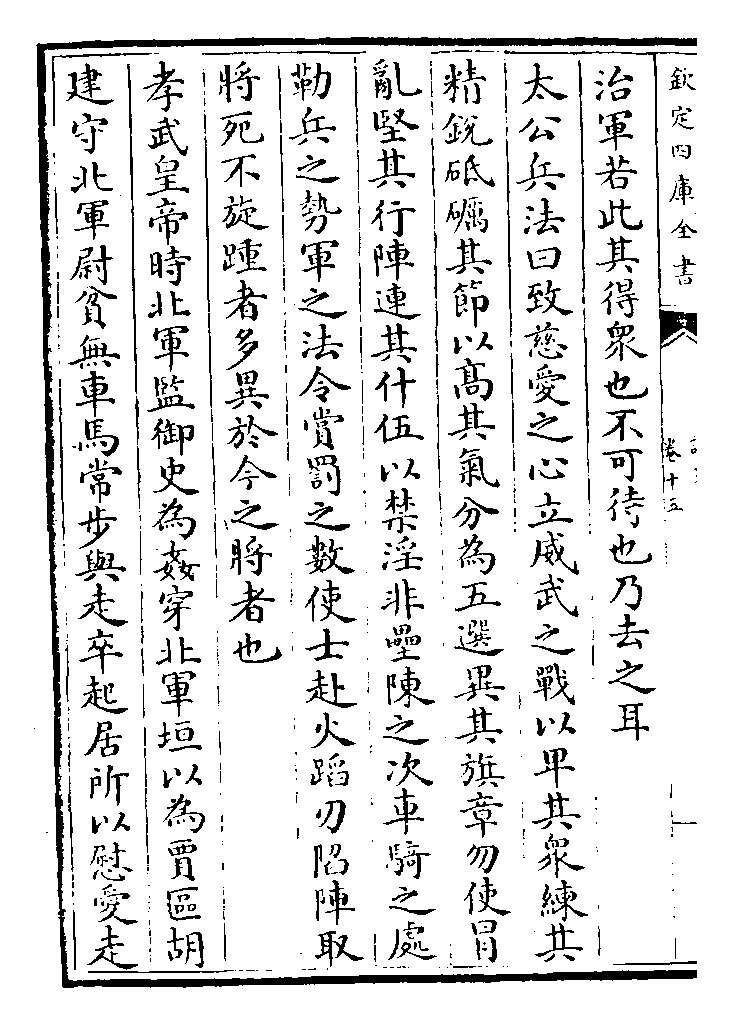 欽定四庫全書
卷十五
治軍若此其得衆也不可待也乃去之耳
太公兵法曰致慈愛之心立威武之戰以卑其衆練其
精銳砥礪其節以髙其氣分為五選異其旗章勿使冒
亂堅其行陣連其什伍以禁淫非壘陳之次車騎之處
勒兵之勢軍之法令賞罰之數使士赴火蹈刃陷陣取
將死不旋踵者多異於今之將者也
孝武皇帝時北軍監御史為姦穿北軍垣以為賈區胡
建守北軍尉貧無車馬常步與走卒起居所以慰愛走